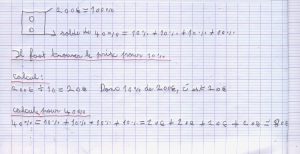 200€ = 100%
solde de 40% = 10% + 10% + 10% + 10%
Il faut trouver le prix pour 10%
calcul:
200€ ÷ 10 = 20€ Donc 10% de 200€, c'est 20€
calcul pour 40%
40% = 10% + 10% + 10% + 10% = 20€ + 20€ + 20€ + 20€ = 80€